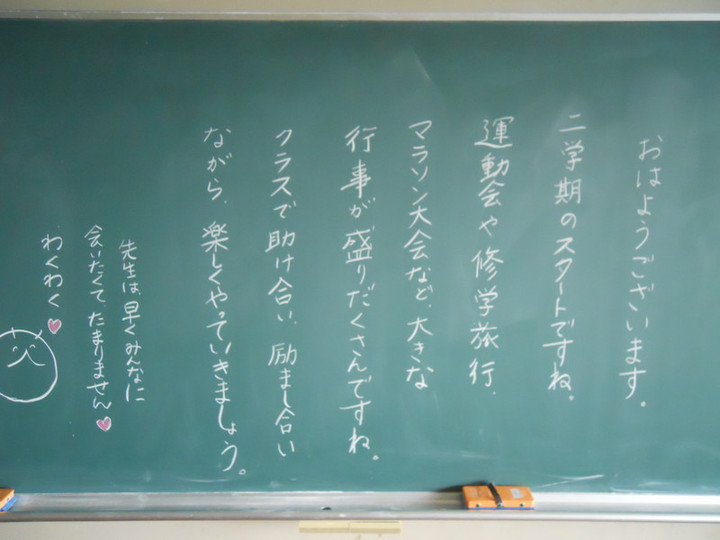 おはようございます。
二学期のスタートですね。
運動会や修学旅行、
マラソン大会など、大きな
行事が盛りだくさんですね。
クラスで助け合い、励まし合い
ながら、楽しくやっていきましょう。
先生は早くみんなに
会いたくて、たまりません♥
わくわく♥